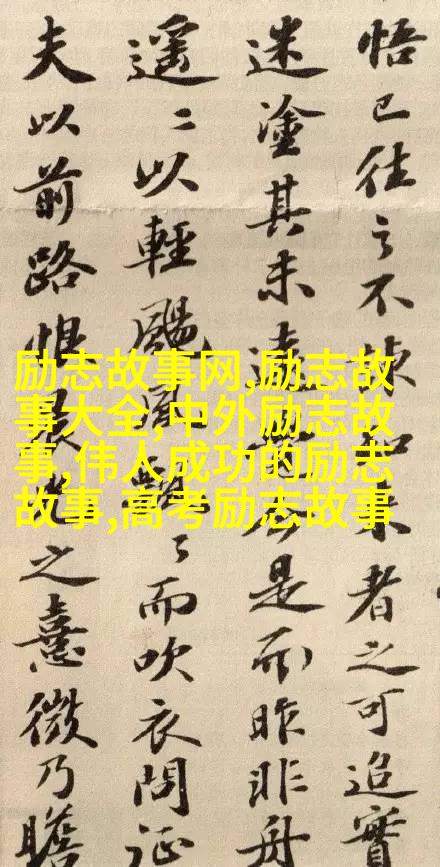 悟已往之不諫知来者之可追實
迷塗其未遠覺今是而昨非舟
遥々以輕颺風飄々而吹衣問征
夫以前路恨晨光之熹微乃瞻
励志故事网,励志故
事大全,中外励志故
事,伟人成功的励志
故事,高考励志故事